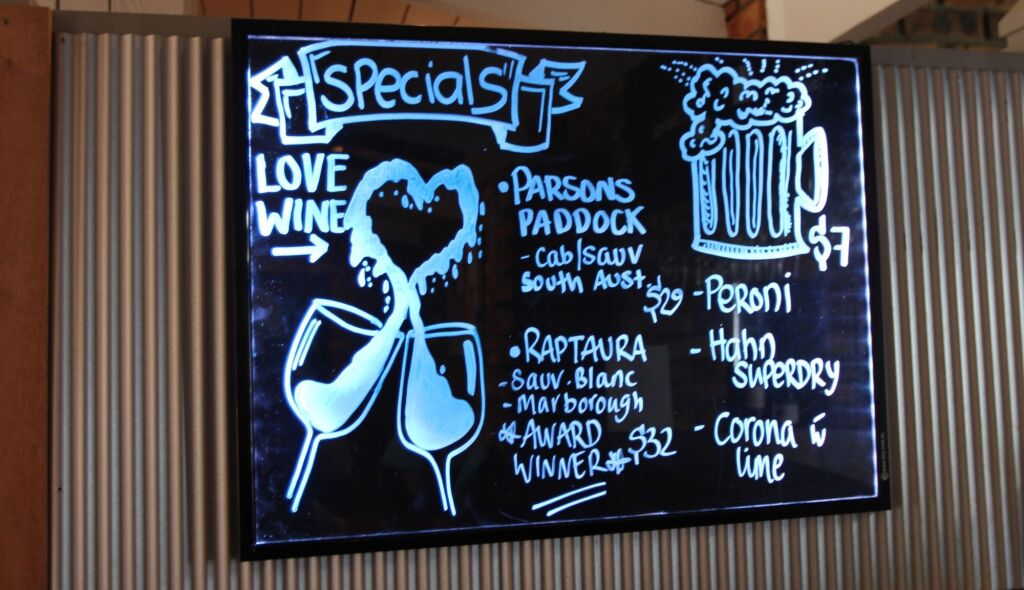 "Specials"
LOVE
WINE
• PARSONS
PADDOCK
- Cab/Sauv
South Aust.
$29
• RAPTAURA
- Sauv.Blanc
- Marborough
*AWARD
WINNER*
$32
$7
- Peroni
- Hahn
SUPERDRY
- Corona w
lime